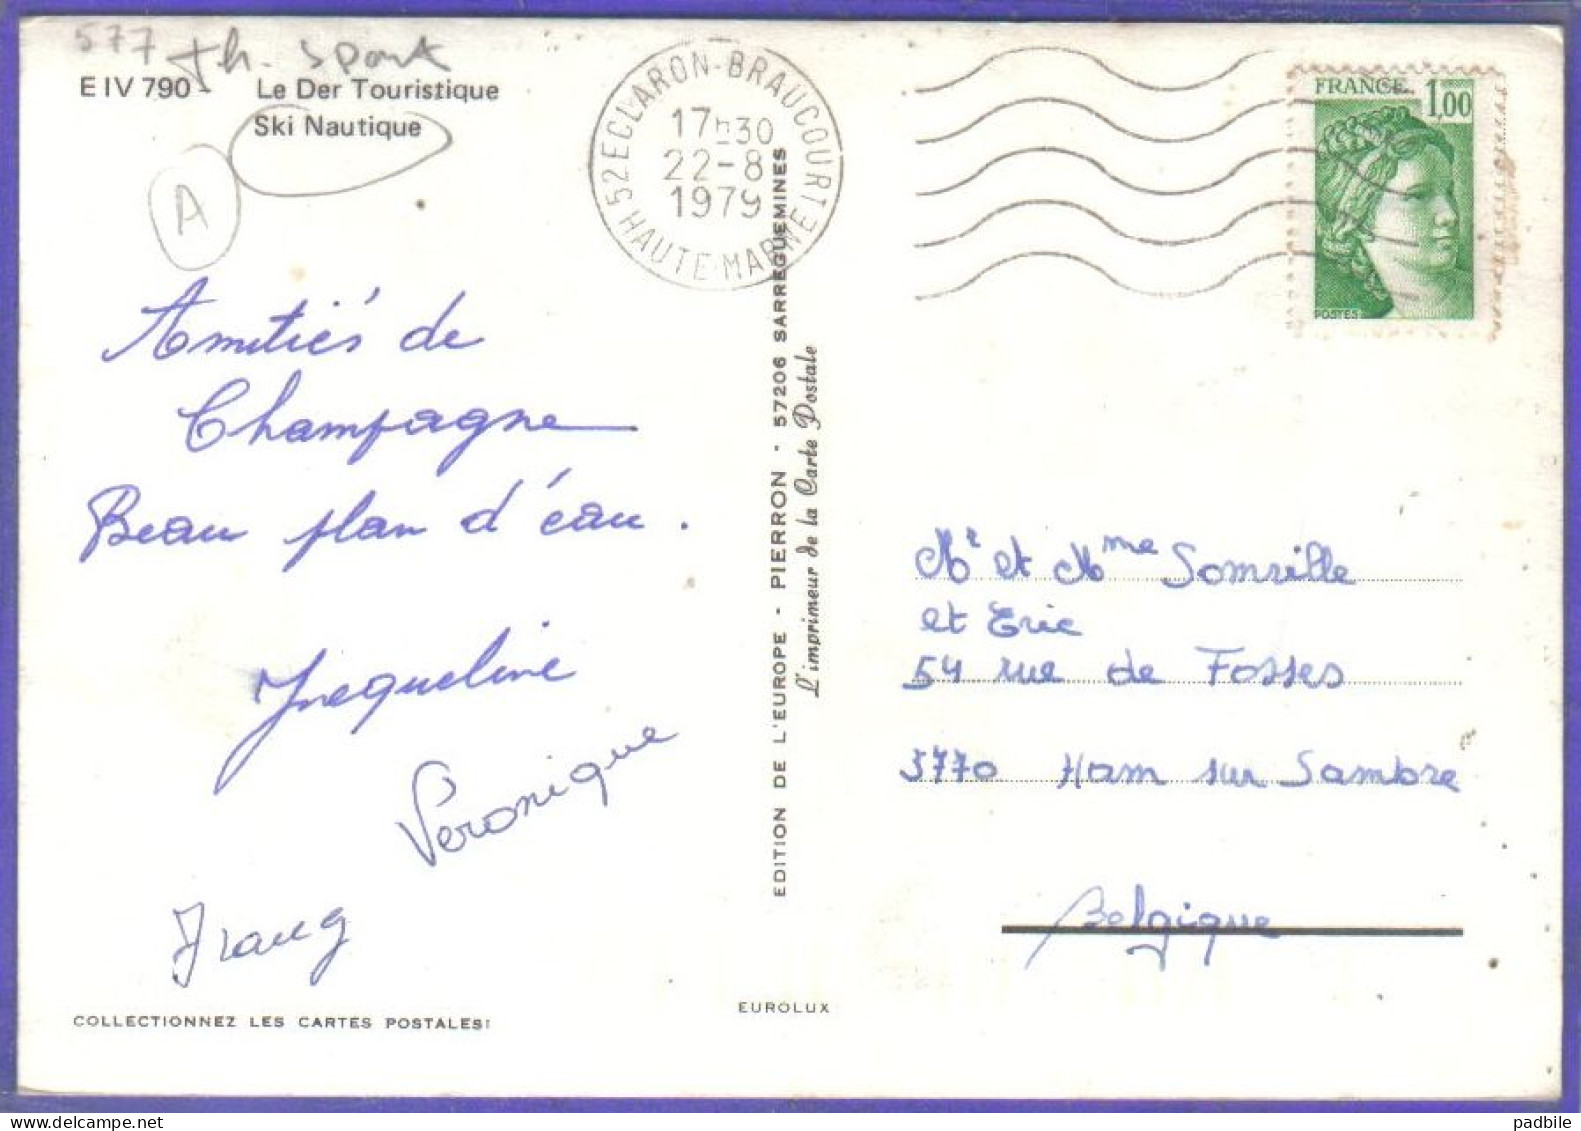 577 th. Sport
E IV 790 - Le Der Touristique
Ski Nautique
A
52 ECLARON-BRAUCOURT
17h30
22-8
1979
HAUTE-MARNE
FRANCE 1,00
POSTES
Amitiés de
Champagne
Beau plan d'éau.
Jacqueline
Véronique
COLLECTIONNEZ LES CARTES POSTALES!
EDITION DE L'EUROPE - PIERRON - 57206 SARREGUEMINES
L'imprimeur de la Carte Postale
EUROLUX
Mr et Mme Somville
et Eric
54 rue de Fosses
5770 Ham sur Sambre
Belgique
padbile